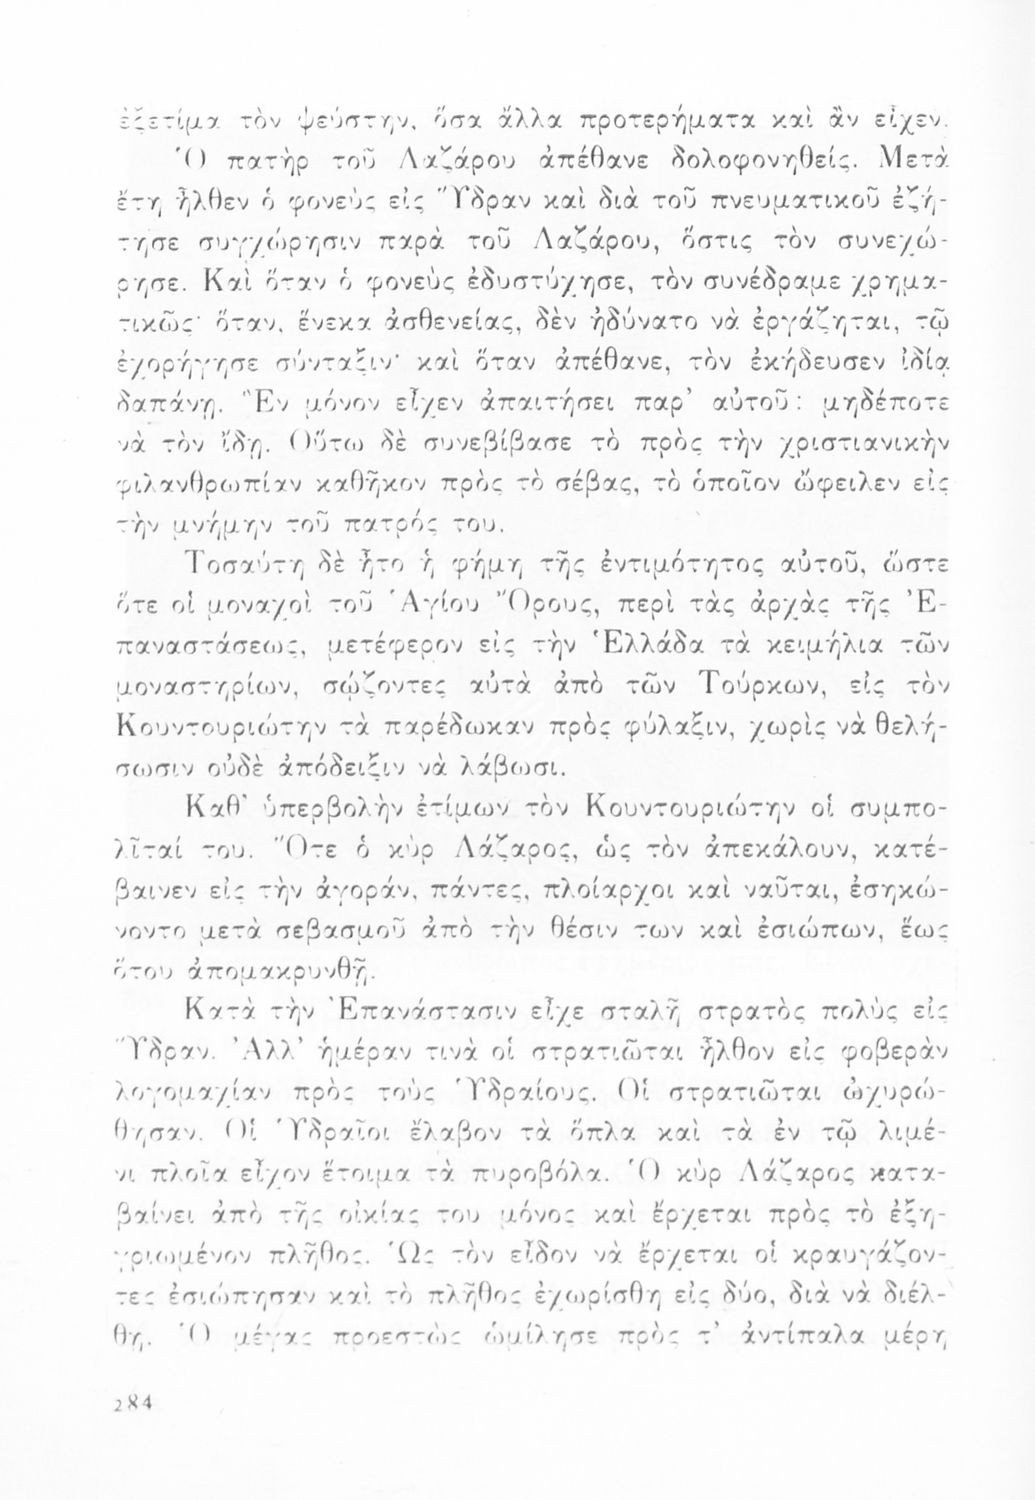 ἐξετίμα τὸν ψεύστην, ὅσα ἄλλα προτερήματα καὶ ἂν εἶχεν.
Ὁ πατὴρ τοῦ Λαζάρου ἀπέθανε δολοφονηθείς. Μετὰ
ἔτη ἦλθεν ὁ φονεὺς εἰς Ὕδραν καὶ διὰ τοῦ πνευματικοῦ ἐζή-
τησε συγχώρησιν παρὰ τοῦ Λαζάρου, ὅστις τὸν συνεχώ-
ρησε. Καὶ ὅταν ὁ φονεὺς ἐδυστύχησε, τὸν συνέδραμε χρημα-
τικῶς· ὅταν, ἕνεκα ἀσθενείας, δὲν ἠδύνατο νὰ ἐργάζηται, τῷ
ἐχορήγησε σύνταξιν· καὶ ὅταν ἀπέθανε, τὸν ἐκήδευσεν ἰδίᾳ
δαπάνῃ. Ἓν μόνον εἶχεν ἀπαιτήσει παρ' αὐτοῦ: μηδέποτε
νὰ τὸν ἴδῃ. Οὕτω δὲ συνεβίβασε τὸ πρὸς τὴν χριστιανικὴν
φιλανθρωπίαν καθῆκον πρὸς τὸ σέβας, τὸ ὁποῖον ὤφειλεν εἰς
τὴν μνήμην τοῦ πατρός του.
Τοσαύτη δὲ ἦτο ἡ φήμη τῆς ἐντιμότητος αὐτοῦ, ὥστε
ὅτε οἱ μοναχοὶ τοῦ Ἁγίου Ὄρους, περὶ τὰς ἀρχὰς τῆς Ἐ-
παναστάσεως, μετέφερον εἰς τὴν Ἑλλάδα τὰ κειμήλια τῶν
μοναστηρίων, σῴζοντες αὐτὰ ἀπὸ τῶν Τούρκων, εἰς τὸν
Κουντουριώτην τὰ παρέδωκαν πρὸς φύλαξιν, χωρὶς νὰ θελή-
σωσιν οὐδὲ ἀπόδειξιν νὰ λάβωσι.
Καθ' ὑπερβολὴν ἐτίμων τὸν Κουντουριώτην οἱ συμπο-
λῖταί του. Ὅτε ὁ κὺρ Λάζαρος, ὡς τὸν ἀπεκάλουν, κατέ-
βαινεν εἰς τὴν ἀγοράν, πάντες, πλοίαρχοι καὶ ναῦται, ἐσηκώ-
νοντο μετὰ σεβασμοῦ ἀπὸ τὴν θέσιν των καὶ ἐσιώπων, ἕως
ὅτου ἀπομακρυνθῇ.
Κατὰ τὴν Ἐπανάστασιν εἶχε σταλῆ στρατὸς πολὺς εἰς
Ὕδραν. Ἀλλ' ἡμέραν τινὰ οἱ στρατιῶται ἦλθον εἰς φοβερὰν
λογομαχίαν πρὸς τοὺς Ὑδραίους. Οἱ στρατιῶται ὠχυρώ-
θησαν. Οἱ Ὑδραῖοι ἔλαβον τὰ ὅπλα καὶ τὰ ἐν τῷ λιμέ-
νι πλοῖα εἶχον ἕτοιμα τὰ πυροβόλα. Ὁ κὺρ Λάζαρος κατα-
βαίνει ἀπὸ τῆς οἰκίας του μόνος καὶ ἔρχεται πρὸς τὸ ἐξη-
γριωμένον πλῆθος. Ὡς τὸν εἶδον νὰ ἔρχεται οἱ κραυγάζον-
τες ἐσιώπησαν καὶ τὸ πλῆθος ἐχωρίσθη εἰς δύο, διὰ νὰ διέλ-
θῃ. Ὁ μέγας προεστὼς ὡμίλησε πρὸς τ' ἀντίπαλα μέρη
284